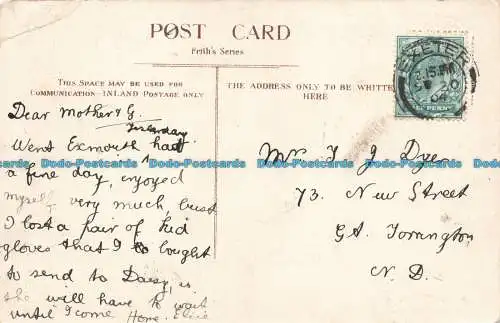 POST CARD
Frith's Series
THIS SPACE MAY BE USED FOR
COMMUNICATION - INLAND POSTAGE ONLY
THE ADDRESS ONLY TO BE WRITTE
HERE
EXETER
Dear Mother & G.
Yesterday
Went Exmouth had
a fine day, enjoyed
myself very much, but
I lost a pair of kid
gloves that I bought
to send to Daisy, is
she will have to wait
until I come Home. Elsie
Mr T J Dyer
73. New Street
Gt Torrington
N. D.
Dodo-Postcards Dodo-Postcards Dodo-Postcards Dodo-Postcards Dodo-Postcards Dodo-Postcards